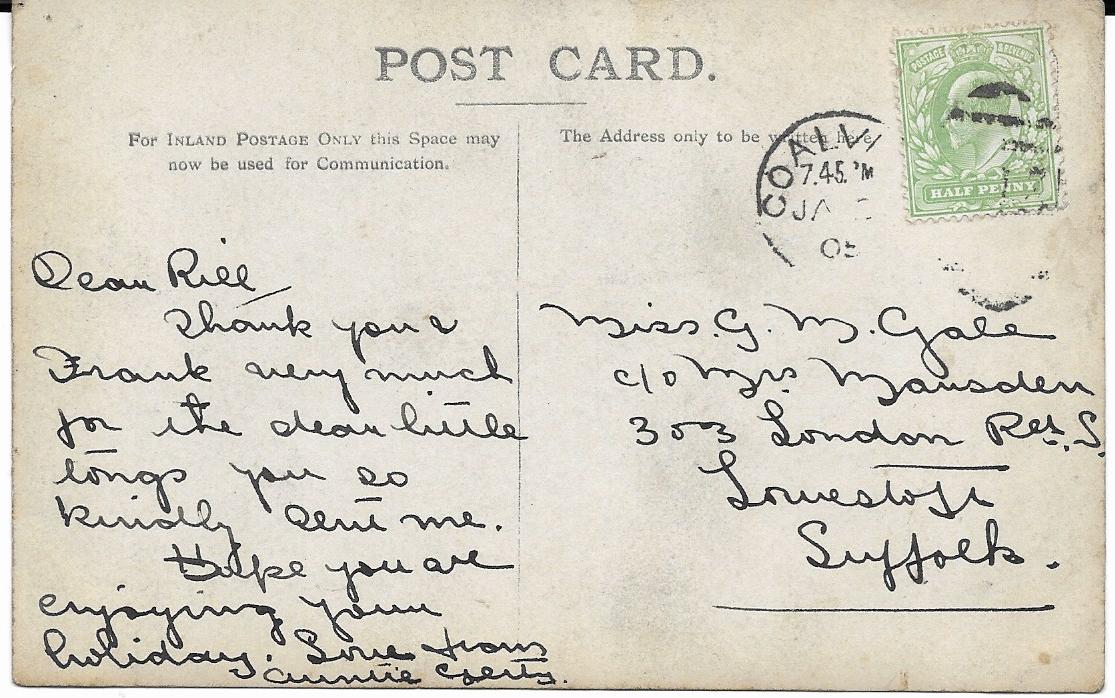 POST CARD.
For INLAND POSTAGE ONLY this Space may
now be used for Communication.
The Address only to be written here
POSTAGE & REVENUE
HALF PENNY
COALVI
7.45.PM
JA
05
Dear Rill
Thank you &
Frank very much
for the dear little
tongs you so
kindly sent me.
Hope you are
enjoying your
holiday. Love from
Auntie
Miss G. M. Gale
c/o Mrs Marsden
303 London Rd. S.
Lowestoft
Suffolk.